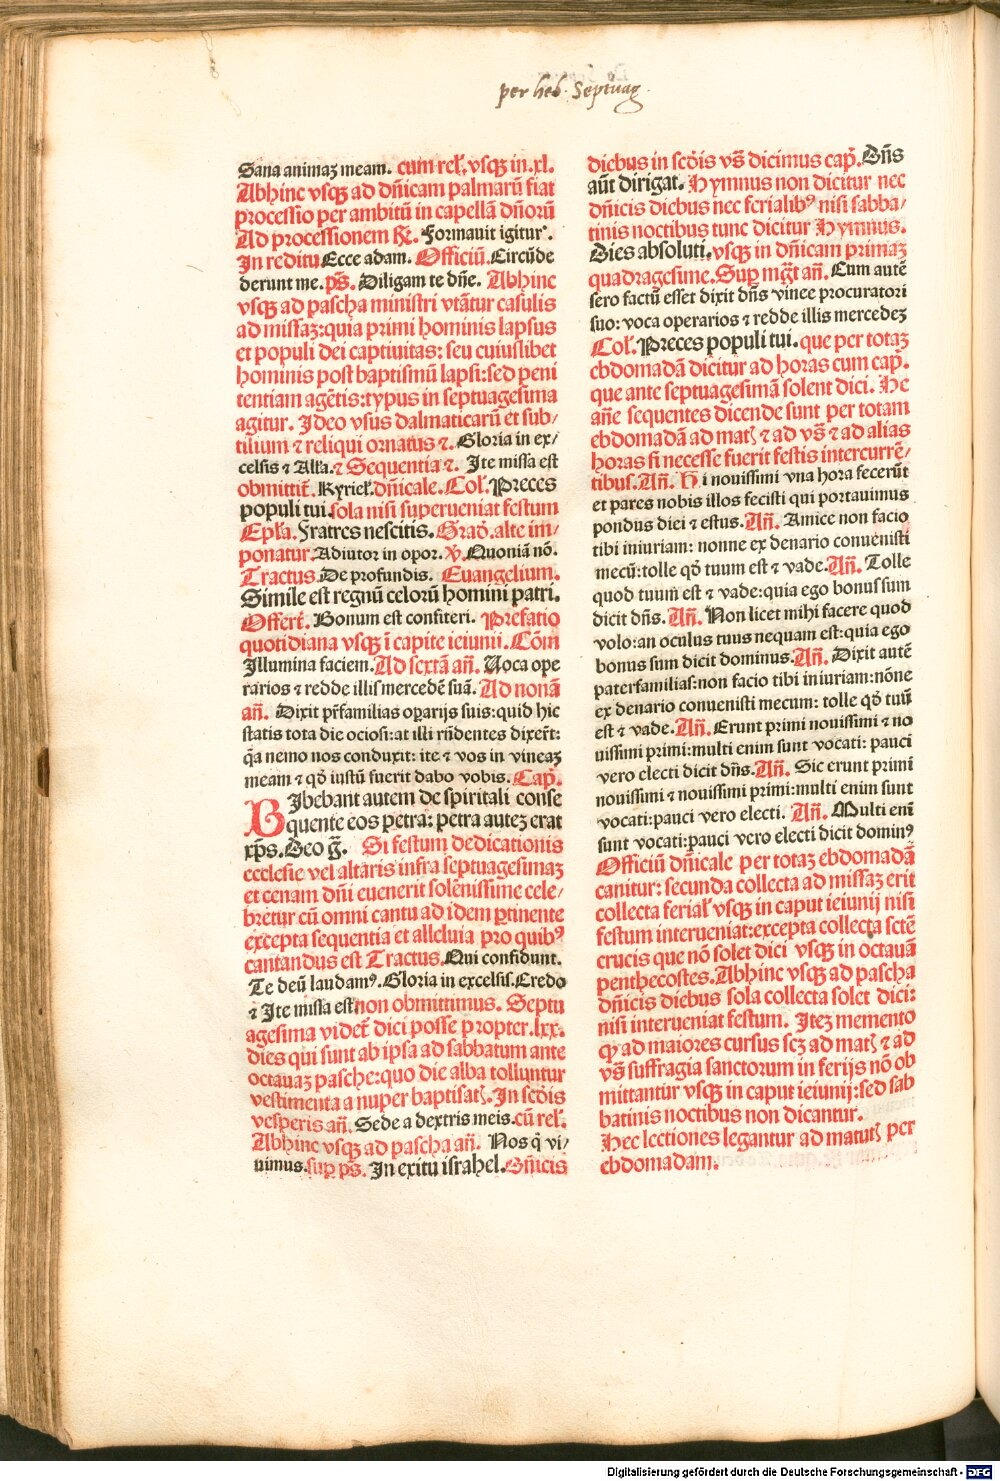 per heb. Septuag.
Sana animaʒ meam. cum rel. vsqʒ in .xl.
Abhinc vsqʒ ad dñicam palmarũ fiat
processio per ambitũ in capellã dñorũ
Ad processionem ℟. Formauit igitur.
In reditu Ecce adam. Officiũ. Circũde
derunt me. p̃s. Diligam te dñe. Abhinc
vsqʒ ad pascha ministri vtãtur casulis
ad missaʒ: quia primi hominis lapsus
et populi dei captiuitas: seu cuiuslibet
hominis post baptismũ lapsi: sed peni
tentiam agẽtis: typus in septuagesima
agitur. Ideo vsus dalmaticarũ et sub/
tilium ⁊ reliqui ornatus ⁊. Gloria in ex/
celsis ⁊ Alla. ⁊ Sequentia ⁊. Ite missa est
obmittit̃. Kyriel. dñicale. Col. Preces
populi tui. sola nisi superueniat festum
Epla. Fratres nescitis. Grad̃. alte im-
ponatur. Adiutor in opor. ℣. Quoniã nõ.
Tractus. De profundis. Euangelium.
Simile est regnũ celorũ homini patri.
Offert̃. Bonum est confiteri. Prefatio
quotidiana vsqʒ ĩ capite ieiunii. Cõm̃
Illumina faciem. Ad sextã añ. Uoca ope
rarios ⁊ redde illis mercedẽ suã. Ad nonã
añ. Dixit pr̃familias oꝑarijs suis: quid hic
statis tota die ociosi: at illi rñdentes dixer̃t:
q̃a nemo nos conduxit: ite ⁊ vos in vineaʒ
meam ⁊ qd̃ iustũ fuerit dabo vobis. Cap̃.
BIbebant autem de spiritali conse
quente eos petra: petra auteʒ erat
xp̃s. Deo g̃. Si festum dedicationis
ecclesie vel altaris infra septuagesimaʒ
et cenam dñi euenerit solẽnissime cele/
bretur cũ omni cantu ad idem ꝑtinente
excepta sequentia et alleluia pro quibꝰ
cantandus est Tractus. Qui confidunt.
Te deũ laudamꝰ. Gloria in excelsis. Credo
⁊ Ite missa est non obmittimus. Septu
agesima videt̃ dici posse propter .lxx.
dies qui sunt ab ipsa ad sabbatum ante
octauaʒ pasche: quo die alba tolluntur
vestimenta a nuper baptisatꝭ. In scd̃is
vesperis añ. Sede a dextris meis. cũ rel.
Abhinc vsqʒ ad pascha añ. Nos q̃ vi/
uimus. suꝑ p̃s. In exitu israhel. Dñicis
diebus in scd̃is vs̃ dicimus cap̃. Dñs
aũt dirigat. Hymnus non dicitur nec
dñicis diebus nec ferialibꝰ nisi sabba/
tinis noctibus tunc dicitur Hymnus.
Dies absoluti. vsqʒ in dñicam primaʒ
quadragesime. Suꝑ mg̃t añ. Cum autẽ
sero factũ esset dixit dñs vinee procuratori
suo: voca operarios ⁊ redde illis mercedeʒ
Col. Preces populi tui. que per totaʒ
ebdomadã dicitur ad horas cum cap̃.
que ante septuagesimã solent dici. He
añe sequentes dicende sunt per totam
ebdomadã ad matꝭ ⁊ ad vs̃ ⁊ ad alias
horas si necesse fuerit festis intercurrẽ/
tibus. Añ. Hi nouissimi vna hora fecerũt
et pares nobis illos fecisti qui portauimus
pondus diei ⁊ estus. Añ. Amice non facio
tibi iniuriam: nonne ex denario conuenisti
mecũ: tolle qd̃ tuum est ⁊ vade. Añ. Tolle
quod tuum est ⁊ vade: quia ego bonus sum
dicit dñs. Añ. Non licet mihi facere quod
volo: an oculus tuus nequam est: quia ego
bonus sum dicit dominus. Añ. Dixit autẽ
paterfamilias: non facio tibi iniuriam: nõne
ex denario conuenisti mecum: tolle qd̃ tuũ
est ⁊ vade. Añ. Erunt primi nouissimi ⁊ no
uissimi primi: multi enim sunt vocati: pauci
vero electi dicit dñs. Añ. Sic erunt primi
nouissimi ⁊ nouissimi primi: multi enim sunt
vocati: pauci vero electi. Añ. Multi eni
sunt vocati: pauci vero electi dicit dominꝰ
Officiũ dñicale per totaʒ ebdomadã
canitur: secunda collecta ad missaʒ erit
collecta ferial vsqʒ in caput ieiunij nisi
festum interueniat: excepta collecta sctẽ
crucis que nõ solet dici vsqʒ in octauã
penthecostes. Abhinc vsqʒ ad pascha
dñicis diebus sola collecta solet dici:
nisi interueniat festum. Iteʒ memento
ꝙ ad maiores cursus scʒ ad matꝭ ⁊ ad
vs̃ suffragia sanctorum in ferijs nõ ob
mittantur vsqʒ in caput ieiunij: sed sab
batinis noctibus non dicantur.
Hec lectiones legantur ad matutꝭ per
ebdomadam.
Digitalisierung gefördert durch die Deutsche Forschungsgemeinschaft - DFG